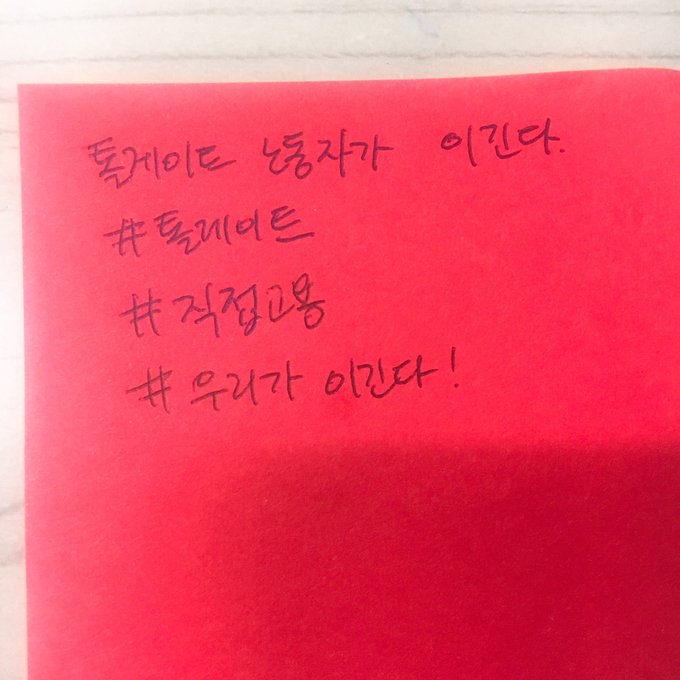 톨게이트 노동자가 이긴다.
#톨게이트
#직접고용
#우리가 이긴다!